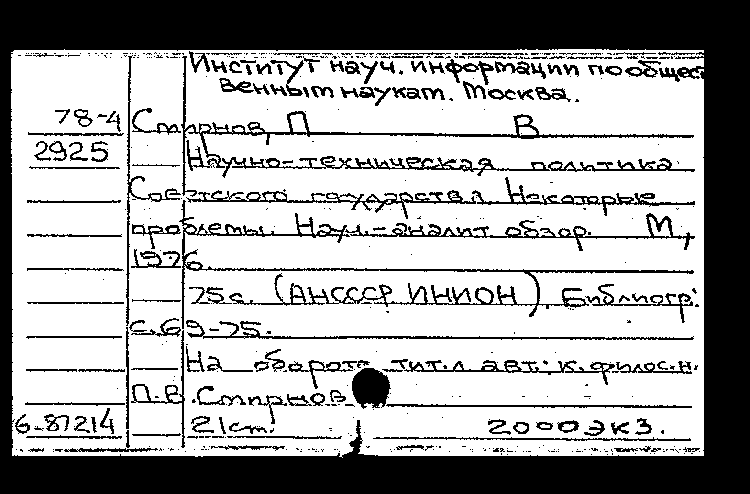 Институт науч. информации по общест
венным наукам. Москва.
78-4 Смирнов, П В
2925 Научно-техническая политика
Советского государства. Некоторые
проблемы. Науч.-аналит. обзор. М.,
1976.
75 с. (АН СССР. ИНИОН). Библиогр.:
с. 69-75.
На обороте тит. л. авт.: к. филос. н.
П.В. Смирнов
6-87214 21 ст. 2000 экз.